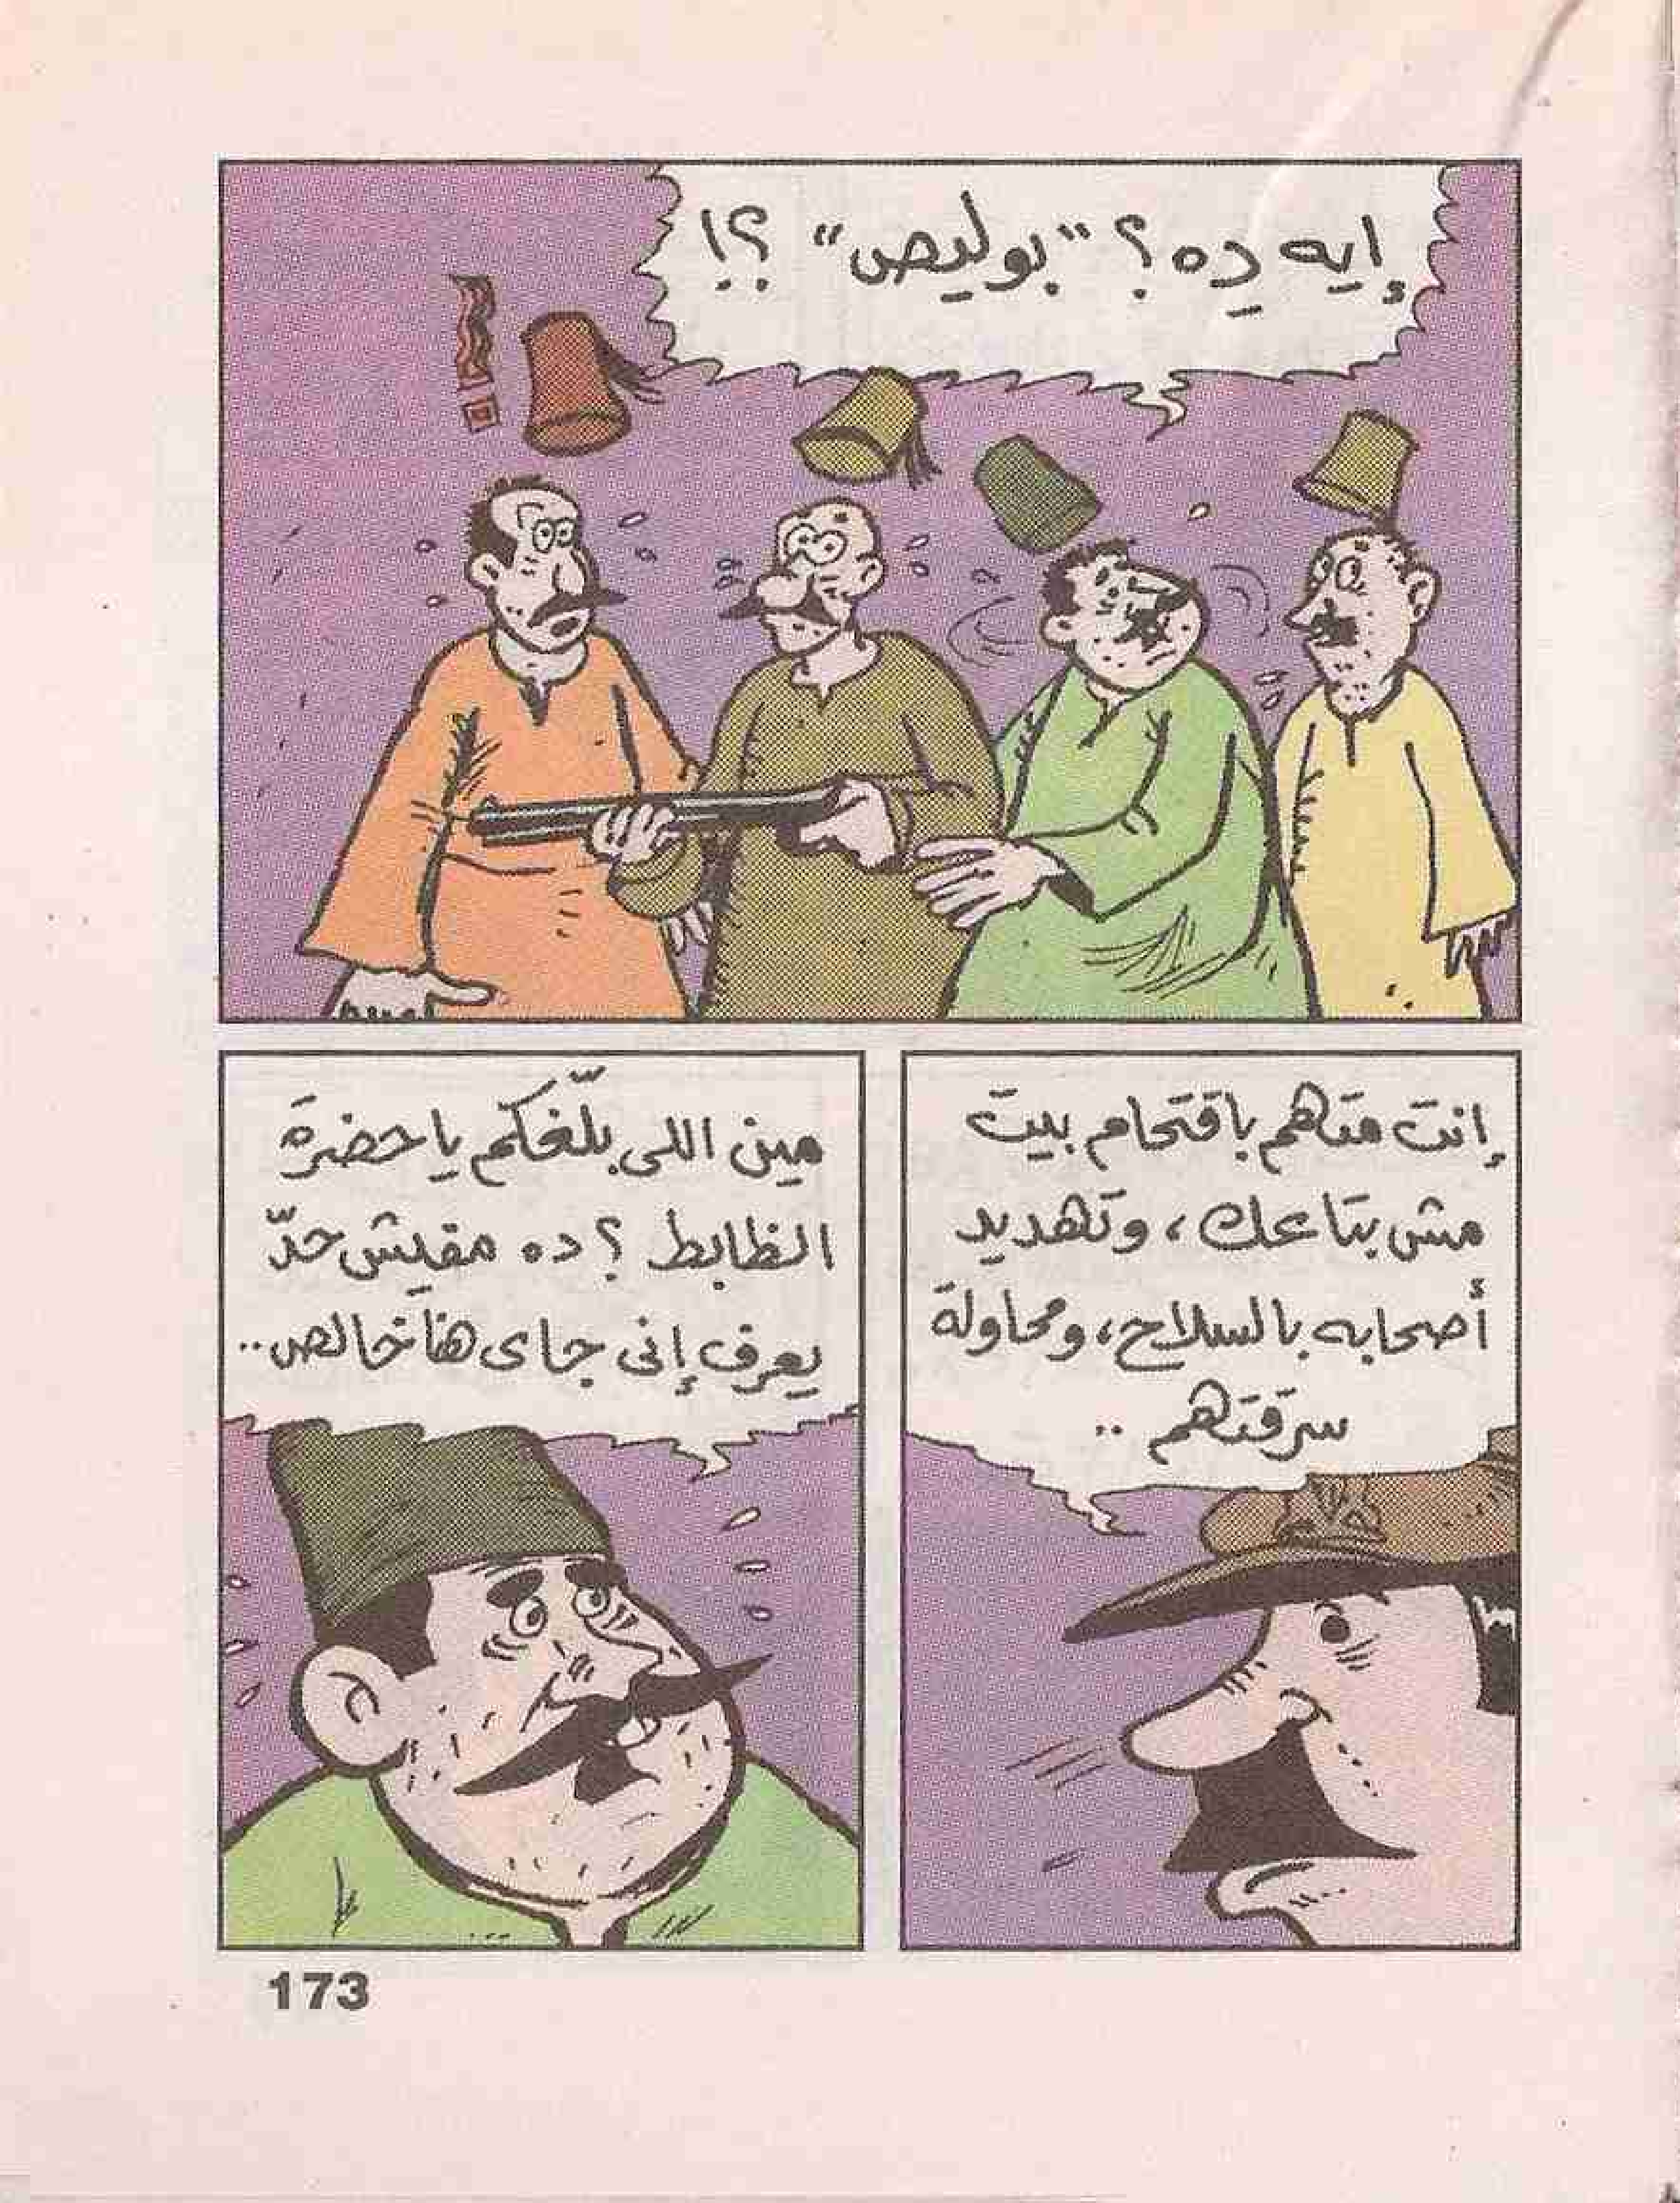 إيه دِه؟ "بوليص" ؟!
إنت متهم باقتحام بيت
مش بتاعك، وتهديد
أصحابه بالسلاح، ومحاولة
سرقتهم ..
مين اللى بلّغكم يا حضرة
الظابط ؟ ده مفيش حدّ
يعرف إنى جاى هنا خالص..
173